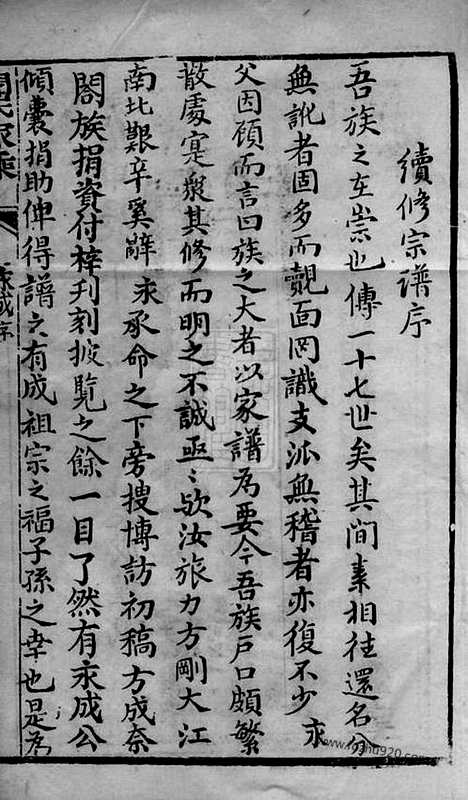 續修宗譜序
吾族之在崇也傳一十七世矣其間素相往還名分
無訛者固多而覿面罔識支派無稽者亦復不少 永
父因顧而言曰族之大者以家譜為要今吾族戶口頗繁
散處寔衆其修而明之不誠亟〻歟汝旅力方剛大江
南北艱辛奚辭 永承命之下旁搜博訪初稿方成奈
閤族捐資付梓刋刻披覽之餘一目了然有永成公
傾囊捐助俾得譜之有成祖宗之福子孫之幸也是為
永成序
www.foshu920.com